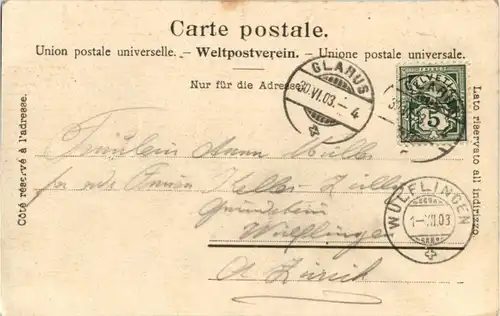 Carte postale.
Union postale universelle. — Weltpostverein. — Unione postale universale.
Nur für die Adresse.
GLARUS
30.VI.03.–4
HELVETIA
5
Côté réservé à l'adresse.
Lato riservato all'indirizzo.
Fräulein Anna Müller
Keller-Zuller
Grundstein
Wülflingen
Zürich
WÜLFLINGEN
1–VII.03